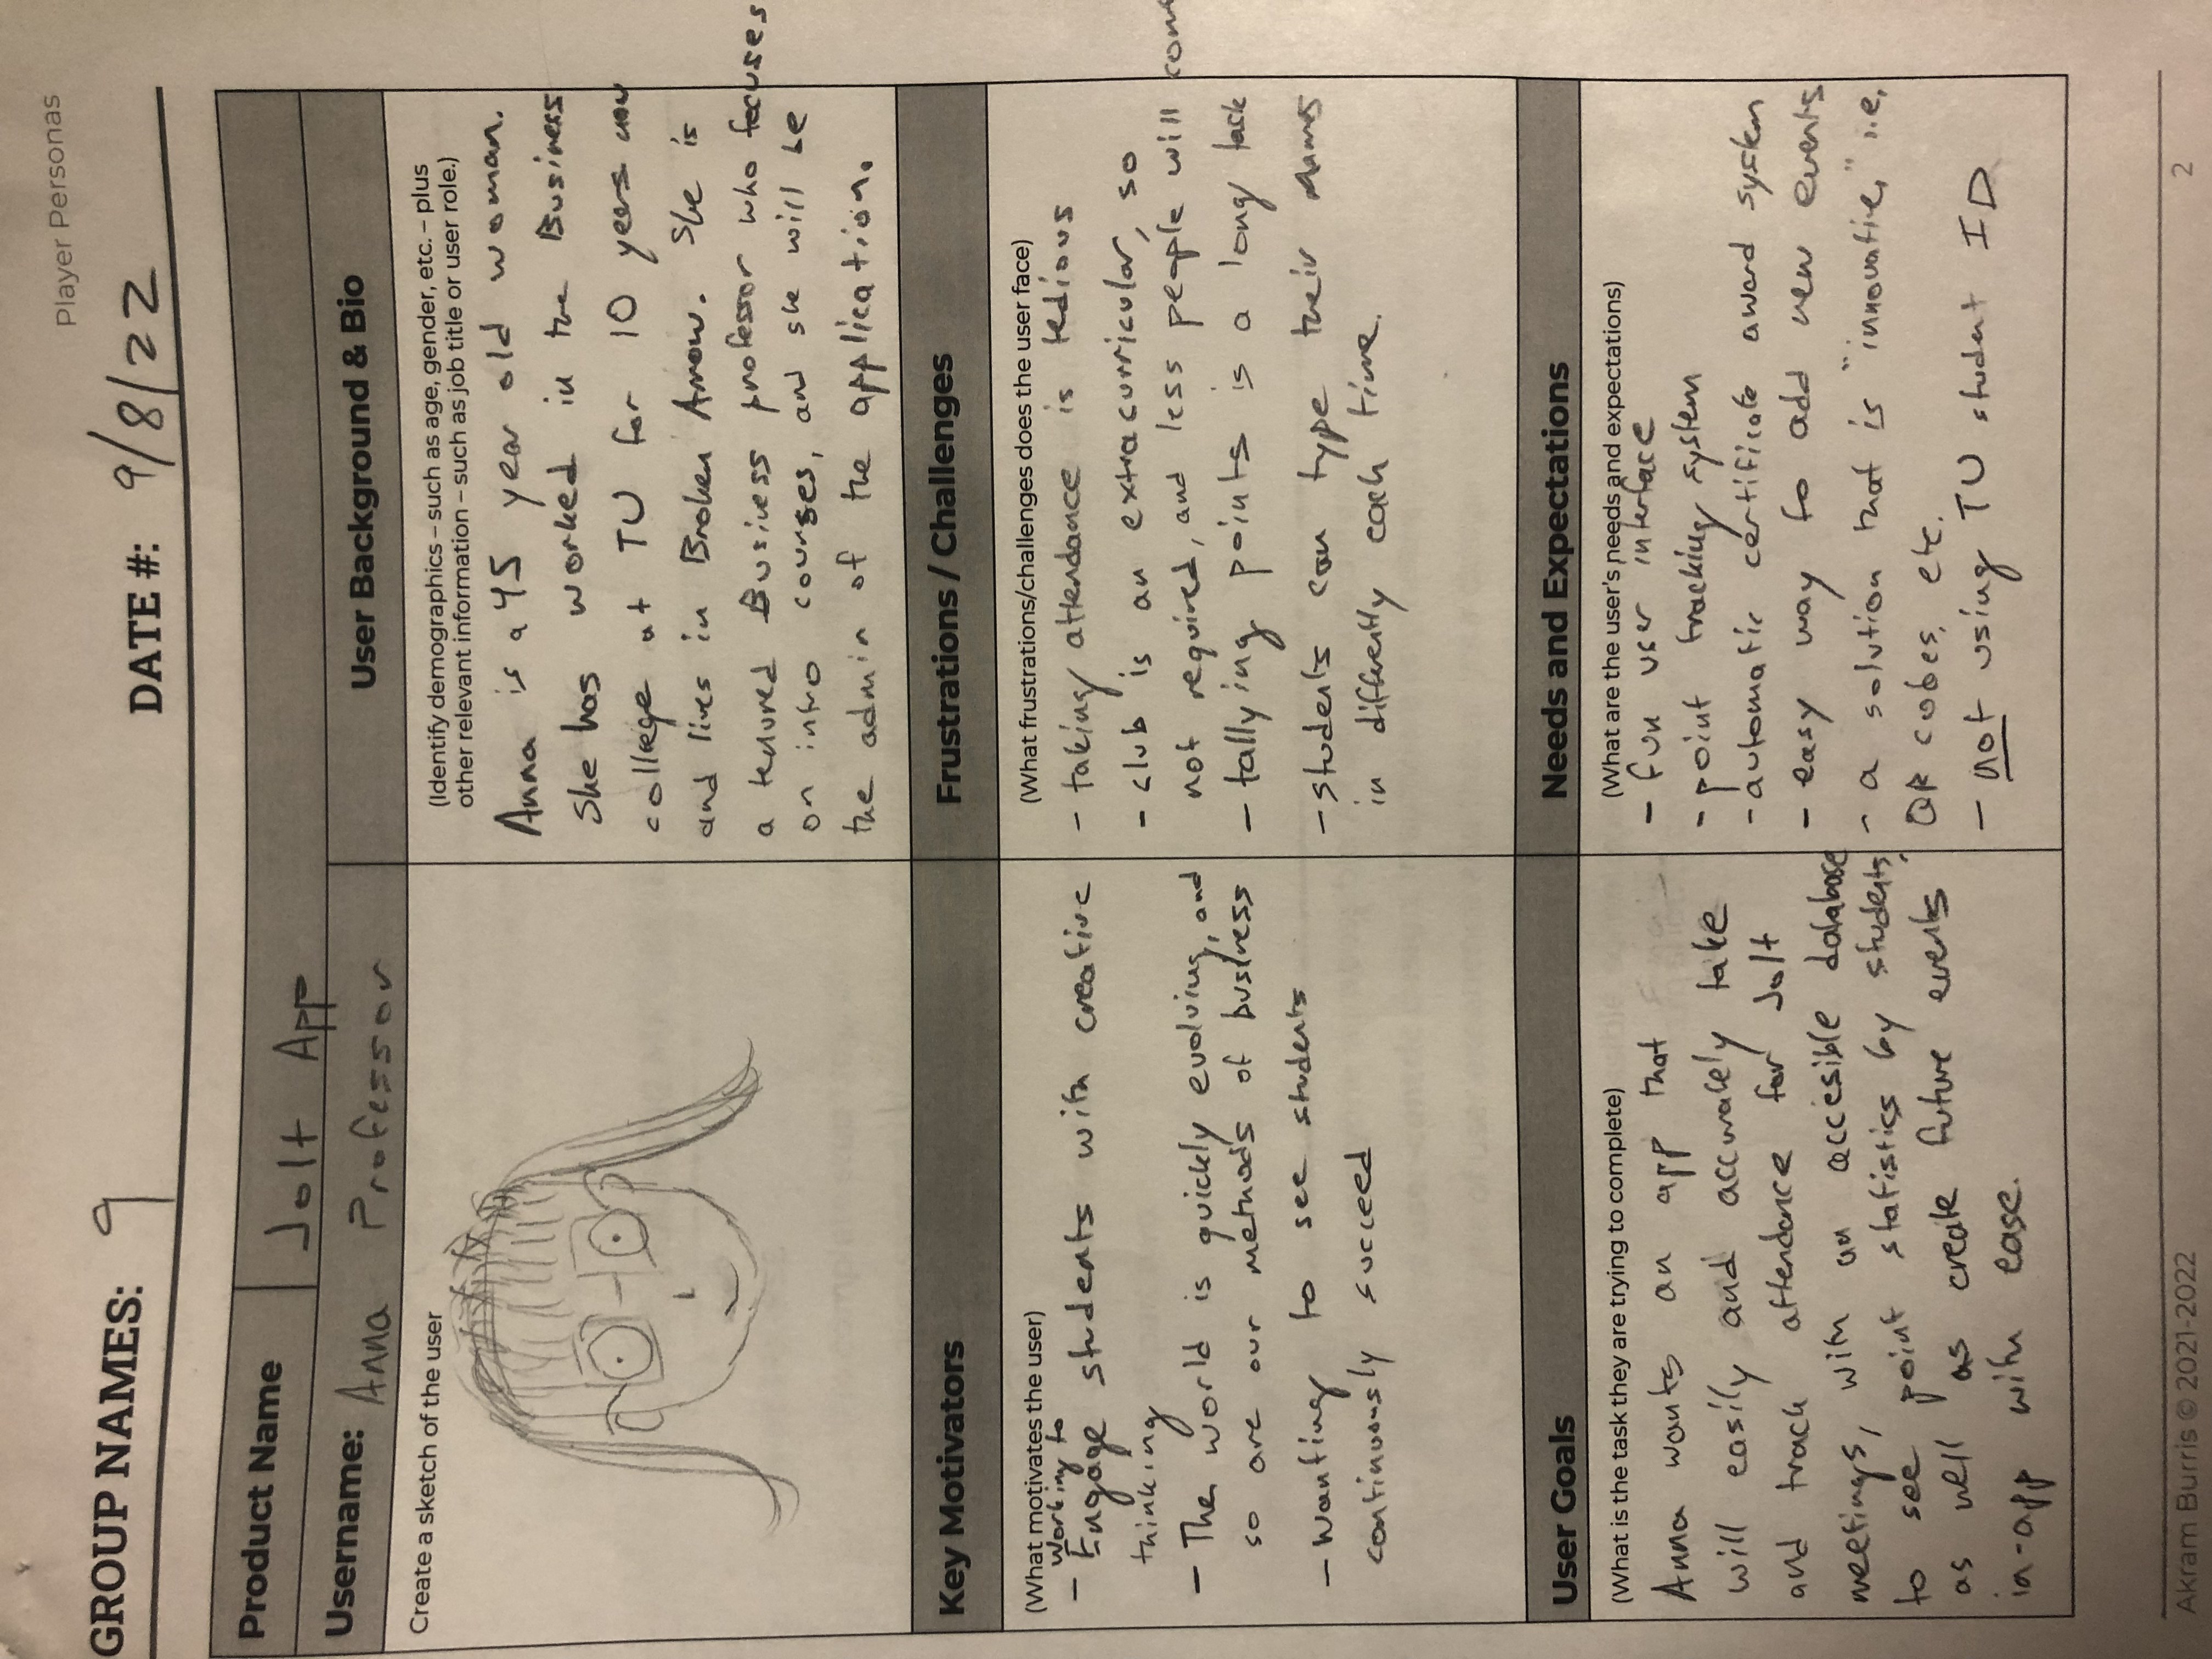 Player Personas
GROUP NAMES: 9
DATE #: 9/8/22
Product Name
Jolt App
Username: Anna Professor
Create a sketch of the user
User Background & Bio
(Identify demographics – such as age, gender, etc. – plus
other relevant information – such as job title or user role.)
Anna is a 45 year old woman.
She has worked in the Business
college at TU for 10 years now
and lives in Broken Arrow. She is
a tenured Business professor who focuses
on intro courses, and she will be
the admin of the application.
Key Motivators
(What motivates the user)
working to
- Engage students with creative
thinking
- The world is quickly evolving, and
so are our methods of business
- Wanting to see students
continuously succeed
Frustrations / Challenges
(What frustrations/challenges does the user face)
- taking attendance is tedious
- club is an extracurricular, so
not required, and less people will come
- tallying points is a long task
- students can type their names
in differently each time.
User Goals
(What is the task they are trying to complete)
Anna wants an app that
will easily and accurately take
and track attendance for Jolt
meetings, with an accesible database
to see point statistics by students,
as well as create future events
in-app with ease.
Needs and Expectations
(What are the user's needs and expectations)
- fun user interface
- point tracking system
- automatic certificate award system
- easy way to add new events
- a solution that is "innovative," i.e.
QR codes, etc.
- not using TU student ID
Akram Burris © 2021-2022
2